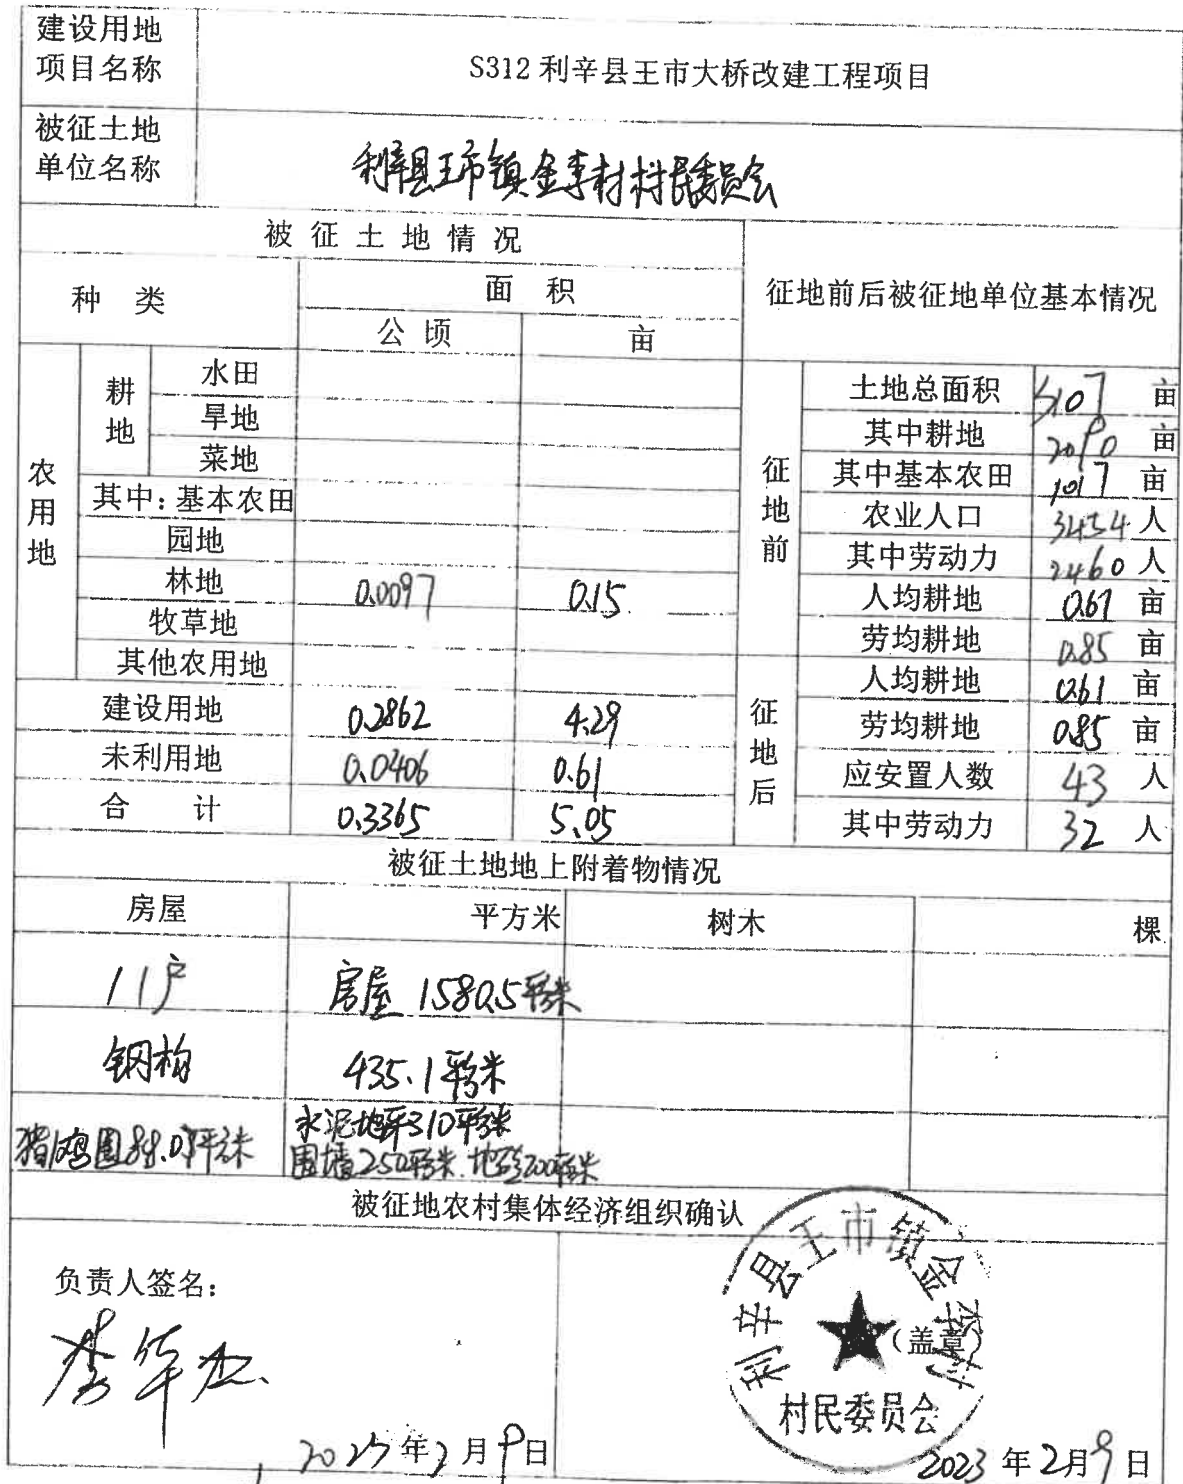 建设用地
项目名称
S312利辛县王市大桥改建工程项目
被征土地
单位名称
利辛县王市镇金李村村民委员会
被征土地情况
征地前后被征地单位基本情况
种 类
面 积
公顷 亩
农用地
耕地
水田
旱地
菜地
其中：基本农田
园地
林地 0.0097 0.15
牧草地
其他农用地
建设用地 0.2862 4.29
未利用地 0.0406 0.61
合 计 0.3365 5.05
征地前
土地总面积 3107 亩
其中耕地 2090 亩
其中基本农田 1017 亩
农业人口 3454 人
其中劳动力 2460 人
人均耕地 0.61 亩
劳均耕地 0.85 亩
征地后
人均耕地 0.61 亩
劳均耕地 0.85 亩
应安置人数 43 人
其中劳动力 32 人
被征土地地上附着物情况
房屋 平方米 树木 棵
11户 房屋 1580.5平方米
钢构 435.1平方米
水泥地坪310平方米
围墙250平方米.地砖200平方米
被征地农村集体经济组织确认
负责人签名：
李华
2023年2月9日
利辛县王市镇金李村
（盖章）
村民委员会
2023年2月9日